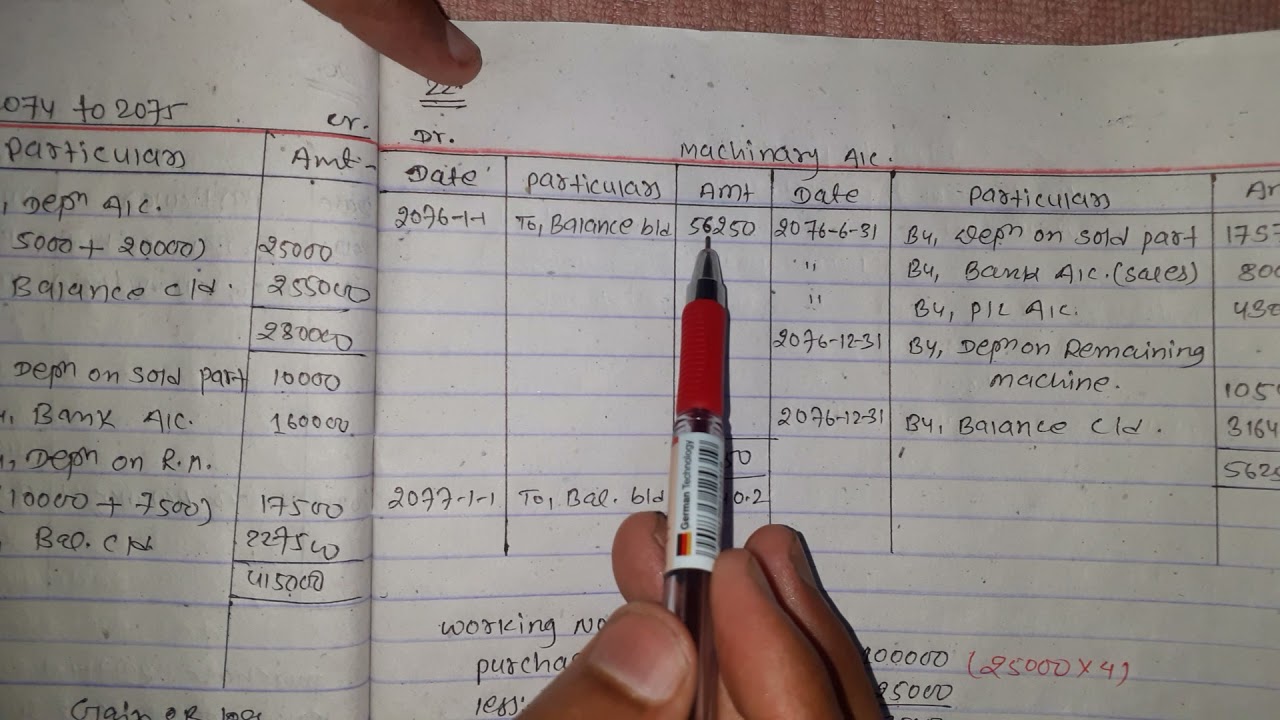 074 to 2075
cr.
particulars Amt
, Depn A/c.
5000 + 20000) 25000
Balance c/d. 255000
280000
Depn on sold part 10000
, Bank A/c. 160000
, Depn on R.m.
(10000 + 7500) 17500
Bal. c/d 227500
415000
22
Dr. Machinary A/c.
Date particulars Amt Date particulars
2076-1-1 To, Balance b/d 56250 2076-6-31 By, Depn on sold part 1757
" By, Bank A/c. (sales) 800
" By, P/L A/c.
2076-12-31 By, Depn on Remaining
machine. 105
2076-12-31 By, Balance c/d. 3164
50 562
2077-1-1 To, Bal. b/d 0.2
working
purcha 100000 (25000 x 4)
less: 25000
Gain or loss
German Technology